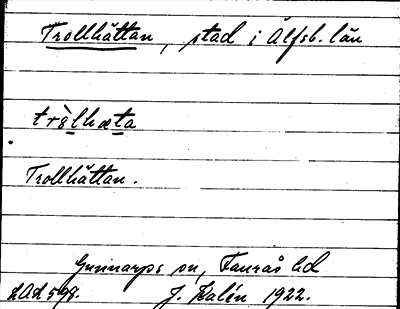 Trollhättan, stad i Älfsb. län
tròlhæta
Trollhättan.
Gunnarps sn, Faurås hd
LAL 598. J. Kalén 1922.